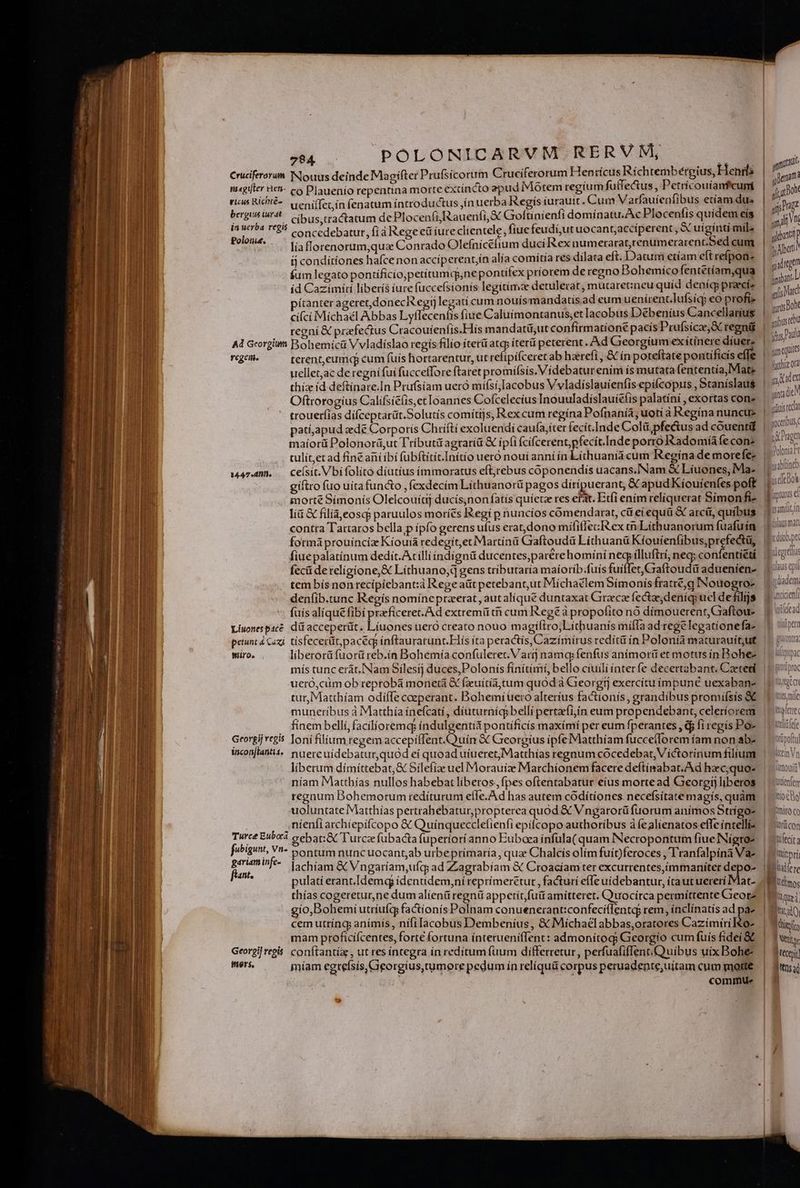 784 POLONICARVM RERVM,
Cruciferorum
magister Hen-
ricus Richtē-
bergius iurat
in uerba regis
Poloniæ.
Nouus deinde Magister Prussicorum Cruciferorum Henricus Richtembergius, Henri-
co Plauenio repentina morte extincto apud Motem regium
ueniss et, in senatum introductus, in uerba Regis iurauit. Cum Varsauiensibus etiam du-
cibus, tractatum de Plocensi, Rauensi, & Gostiniensi dominatu. Ac Plocensis quidem eis
concedebatur, si à Rege eū iure clientele, siue feudi, ut uocant, acciperent, & uiginti mil-
lia florenorum, quæ Conrado Olesnicēsium duci Rex numerarat, renumerarent. Sed cum
ij conditiones hasce non acciperent, in alia comitia res dilata est. Datum etiam est respon-
sum legato pontificio, petitumq;, ne pontifex priorem de regno Bohemico sententiam, qua
id Cazimiri liberis iure successionis legitimæ detulerat, mutaret: neu quid deniq; præci-
pitanter ageret, donec Regij legati cum nouis mandatis ad eum uenirent. Iussiq; eo profi-
cisci Michaël Abbas Lyssecensis siue Caluimontanus, et Iacobus Debenius Cancellarius
regni & præfectus Cracouiensis. His mandatū, ut confirmationē pacis Prussicæ, & regnū
Ad Georgium
regem.
Bohemicū Vvladislao regis filio iterū atq; iterū peterent. Ad Georgium ex itinere diuer-
terent, eumq; cum suis hortarentur, ut resipisceret ab hæresi, & in potestate pontificis esse
uellet, ac de regni sui successore staret promissis. Videbatur enim is mutata sententia, Mat-
thiæ id destinare. In Prussiam uero missi, Iacobus Vvladislauiensis episcopus, Stanislaus
Ostrorogius Calissiēsis, et Ioannes Coscelecius Inouuladislauiēsis palatini, exortas con-
trouersias disceptarūt. Solutis comitijs, Rex cum regina Posnaniā, uoti à Regina nuncu-
pati, apud ædē Corporis Christi exoluendi causa, iter fecit. Inde Colū, pfectus ad couentū
maiorū Polonorū, ut Tributū agrariū & ipsi sciscerent, pfecit. Inde porro Radomiā se con-
tulit, et ad finē anī ibi substitit. Initio uero noui anni in Lithuaniā cum Regina de more ses-
1447. ann.
cessit. Vbi solito diutius immoratus est, rebus cōponendis uacans. Nam & Liuones, Ma-
gistro suo uita functo, sexdecim Lithuanorū pagos diripuerant, & apud Kiouienses post
mortē Simonis Olelcouitij ducis, non satis quietæ res erāt. Etsi enim reliquerat Simon fi-
liū & filiā, eosq; paruulos moriēs Regi p nuncios cōmendarat, cū ei equū & arcū, quibus
contra Tartaros bella p ipso gerens usus erat, dono misisset: Rex tn̄ Lithuanorum suasu in
formā prouinciæ Kiouiā redegit, et Martinū Gastoudū Lithuanū Kiouiensibus, prefectū,
siue palatinum dedit. At illi indignū ducentes, parēre homini neq; illustri, neq; consentiēti
secū de religione, & Lithuano, q̄ gens tributaria maiorib. suis fuisset, Gastoudū aduenien-
tem bis non recipiebant: à Rege aūt petebant, ut Michaëlem Simonis fratrē, q̄ Nouogro-
densib. tunc Regis nomine præerat, aut aliquē duntaxat Græcæ sectæ, deniq; uel de filijs
suis aliquē sibi præficeret. Ad extremū tn̄ cum Regē à proposito nō dimouerent, Gastou-
Liuones pacē
petunt à Cazi
miro.
dū acceperūt. Liuones uero creato nouo magistro, Lithuanis missa ad regē legatione sa-
tisfecerūt, pacēq; instaurarunt. His ita peractis, Cazimirus reditū in Poloniā maturauit, ut
liberorū suorū reb. in Bohemia consuleret. Varij namq; sensus animorū et motus in Bohe-
mis tunc erāt. Nam Silesij duces, Polonis finitimi, bello ciuili inter se decertabant. Cæteri
uero, cùm ob reprobā monetā & sæuitiā, tum quod à Georgij exercitu impune uexaban-
tur, Matthiam odisse cœperant. Bohemi uero alterius factionis, grandibus promissis &
muneribus à Matthia inescati, diuturniq; belli pertæsi, in eum propendebant, celeriorem
finem belli, facilioremq; indulgentiā pontificis maximi per eum sperantes, q̄ si regis Po-
Georgij regis
inconstantia.
loni filium regem accepissent. Quin & Georgius ipse Matthiam successorem iam non ab-
nuere uidebatur, quòd ei quoad uiueret, Matthias regnum cōcedebat, Victorinum filium
liberum dimittebat, & Silesiæ uel Morauiæ Marchionem facere destinabat. Ad hæc, quo-
niam Matthias nullos habebat liberos, spes ostentabatur eius morte ad Georgij liberos
regnum Bohemorum rediturum esse. Ad has autem cōditiones necessitate magis, quàm
uoluntate Matthias pertrahebatur, propterea quòd & Vngarorū suorum animos Strigo-
niensi archiepiscopo & Quinquecclesiensi episcopo authoribus à se alienatos esse intelli-
Turcæ Eubœā
subigunt, Vn-
gariam infe-
stant.
gebat: & Turcæ subacta superiori anno Eubœa insula (quam Necropontum siue Nigro-
pontum nunc uocant, ab urbe primaria, quæ Chalcis olim fuit) feroces, Transalpinā Va-
lachiam & Vngariam, usq; ad Zagrabiam & Croaciam ter excurrentes, immaniter depo-
pulati erant. Idemq; identidem, ni reprimerētur, facturi esse uidebantur, ita ut uereri Mat-
thias cogeretur, ne dum alienū regnū appetit, suū amitteret. Quocirca permittente Geor-
gio, Bohemi utriusq; factionis Polnam conuenerant: confecissentq; rem, inclinatis ad pa-
cem utrinq; animis, nisi Iacobus Dembenius, & Michaël abbas, oratores Cazimiri Ro-
mam proficiscentes, forte fortuna interuenissent: admonitoq; Georgio cum suis fidei &
Georgij regis
mors.
constantiæ, ut res integra in reditum suum differretur, persuasissent. Quibus uix Bohe-
miam egressis, Georgius, tumore pedum in reliquū corpus peruadente, uitam cum morte
commu-